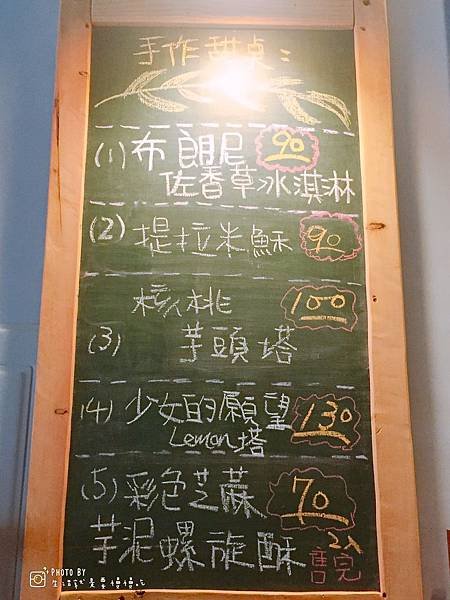 手作甜點:
(1) 布朗尼 90
佐香草冰淇淋
(2) 提拉米酥 90
核桃 100
(3) 芋頭塔
(4) 少女的願望 130
Lemon塔
(5) 彩色芝蔴 70
芋泥螺旋酥 2入
售完
PHOTO BY